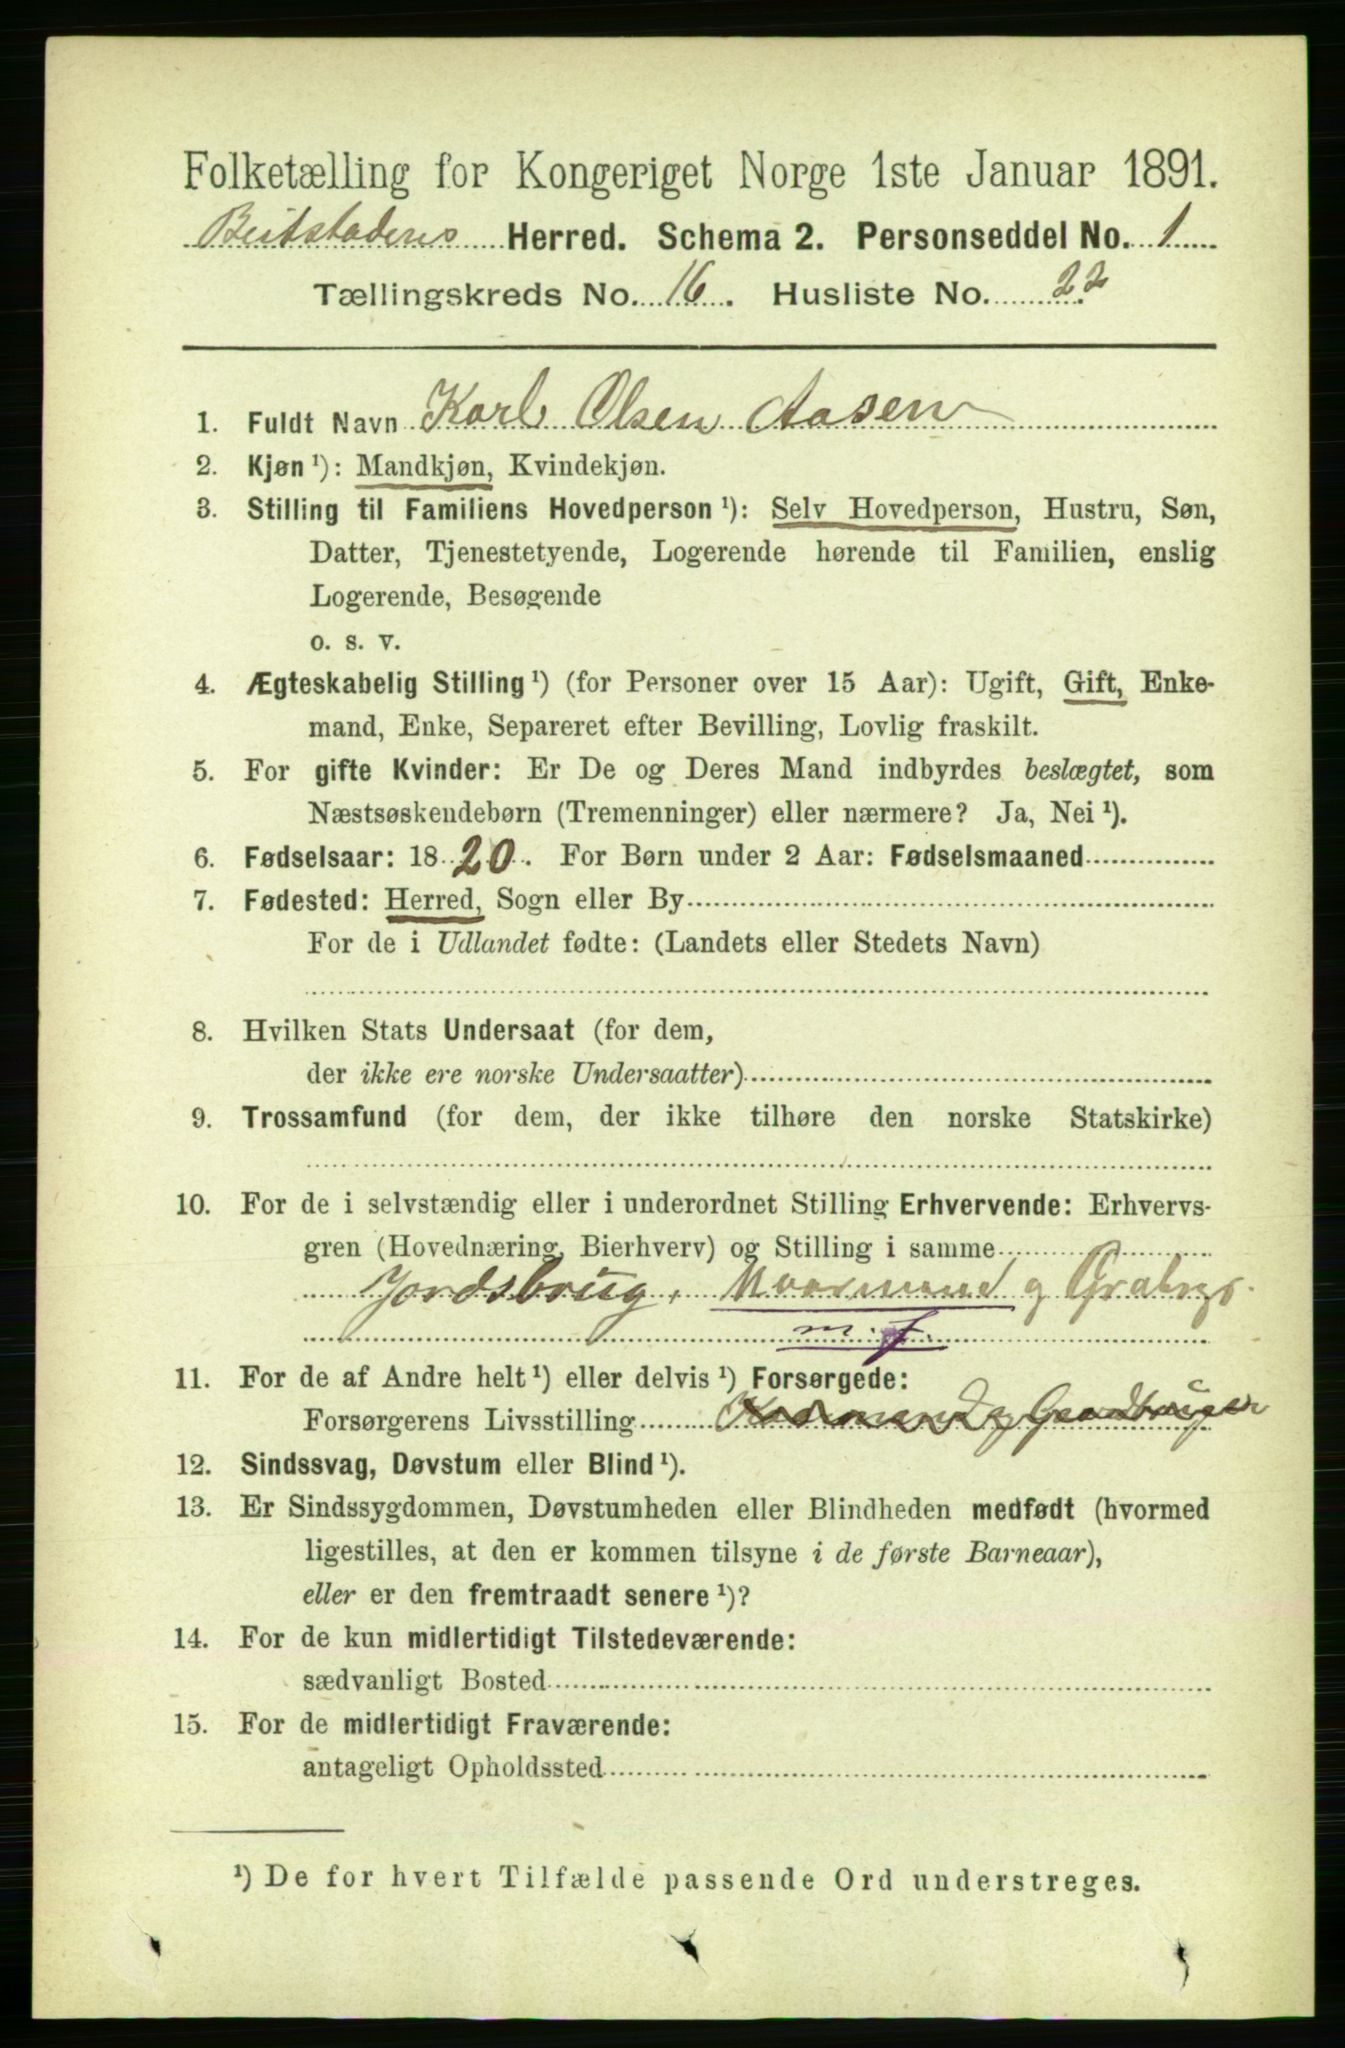 Folketælling for Kongeriget Norge 1ste Januar 1891.
Beitstadens Herred. Schema 2. Personseddel No. 1
Tællingskreds No. 16. Husliste No. 22
1. Fuldt Navn Karl Olsen Aasen
2. Kjøn ¹): Mandkjøn, Kvindekjøn.
3. Stilling til Familiens Hovedperson ¹): Selv Hovedperson, Hustru, Søn,
Datter, Tjenestetyende, Logerende hørende til Familien, enslig
Logerende, Besøgende
o. s. v.
4. Ægteskabelig Stilling ¹) (for Personer over 15 Aar): Ugift, Gift, Enke-
mand, Enke, Separeret efter Bevilling, Lovlig fraskilt.
5. For gifte Kvinder: Er De og Deres Mand indbyrdes beslægtet, som
Næstsøskendebørn (Tremenninger) eller nærmere? Ja, Nei ¹).
6. Fødselsaar: 1820. For Børn under 2 Aar: Fødselsmaaned
7. Fødested: Herred, Sogn eller By
For de i Udlandet fødte: (Landets eller Stedets Navn)
8. Hvilken Stats Undersaat (for dem,
der ikke ere norske Undersaatter)
9. Trossamfund (for dem, der ikke tilhøre den norske Statskirke)
10. For de i selvstændig eller i underordnet Stilling Erhvervende: Erhvervs-
gren (Hovednæring, Bierhverv) og Stilling i samme
Jordsbrug, g
m. f.
11. For de af Andre helt ¹) eller delvis ¹) Forsørgede:
Forsørgerens Livsstilling Gaardbruger
12. Sindssvag, Døvstum eller Blind ¹).
13. Er Sindssygdommen, Døvstumheden eller Blindheden medfødt (hvormed
ligestilles, at den er kommen tilsyne i de første Barneaar),
eller er den fremtraadt senere ¹)?
14. For de kun midlertidigt Tilstedeværende:
sædvanligt Bosted
15. For de midlertidigt Fraværende:
antageligt Opholdssted
¹) De for hvert Tilfælde passende Ord understreges.